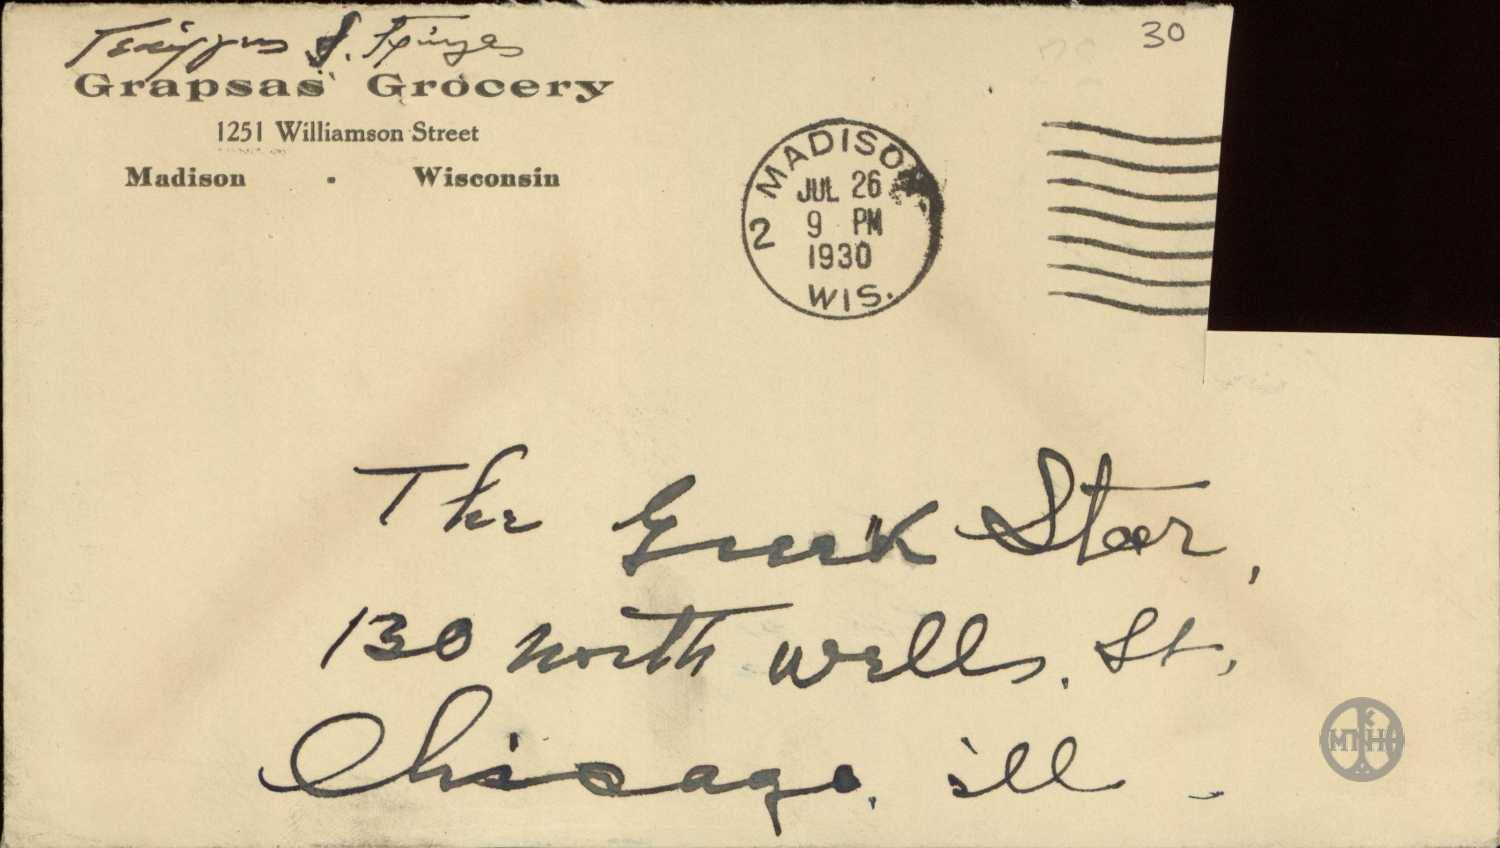 30
Grapsas' Grocery
1251 Williamson Street
Madison · Wisconsin
MADISON
JUL 26
2 9 PM
1930
WIS.
The Greek Star,
130 North Wells. St,
Chicago, ill -